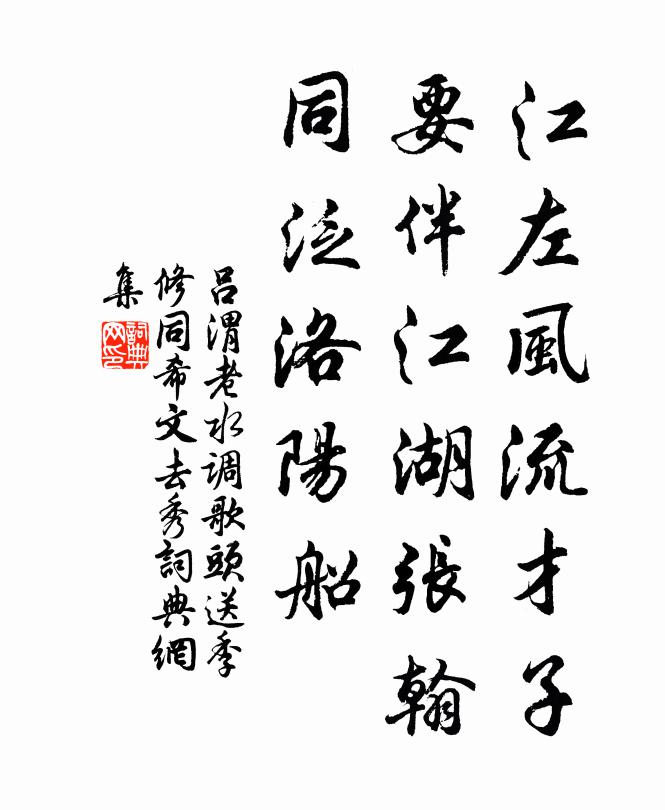 江左風流才子
要伴江湖張翰
同泛洛陽船
呂渭老水調歌頭送季
修同希文去秀詞典網
集
詞典
网印